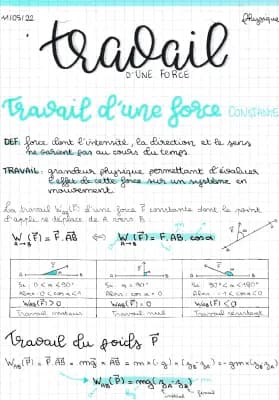 11/05/22
Physique
travail
D'UNE FORCE
Travail d'une force CONSTANTE
DEF: force dont l'intensité, la direction et le sens
ne varient pas au cours du temps.
TRAVAIL: grandeur physique permettant d'évaluer
l'effet de cette force sur un système en
mouvement.
Le travail W_AB(F⃗) d'une force F⃗ constante dont le point
d'appli se déplace de A vers B:
W_A→B(F⃗) = F⃗.AB⃗ ⇔ W_A→B(F⃗) = F.AB.cos α
Si: 0 < α < 90° Si: α = 90° Si: 90° < α < 180°
Alors: 0 < cos α < 1 Alors: cos α = 0 Alors: -1 < cos α < 0
W_AB(F⃗) > 0 W_AB(F⃗) = 0 W_AB(F⃗) < 0
Travail moteur Travail nul Travail résistant
Travail du poids P⃗
W_AB(P⃗) = P⃗.AB⃗ = mg⃗ × AB⃗ = m × (-g) × (z_B - z_A) = -gm × (z_B - z_A)
→ W_AB(P⃗) = mg(z_A - z_B)
initial final